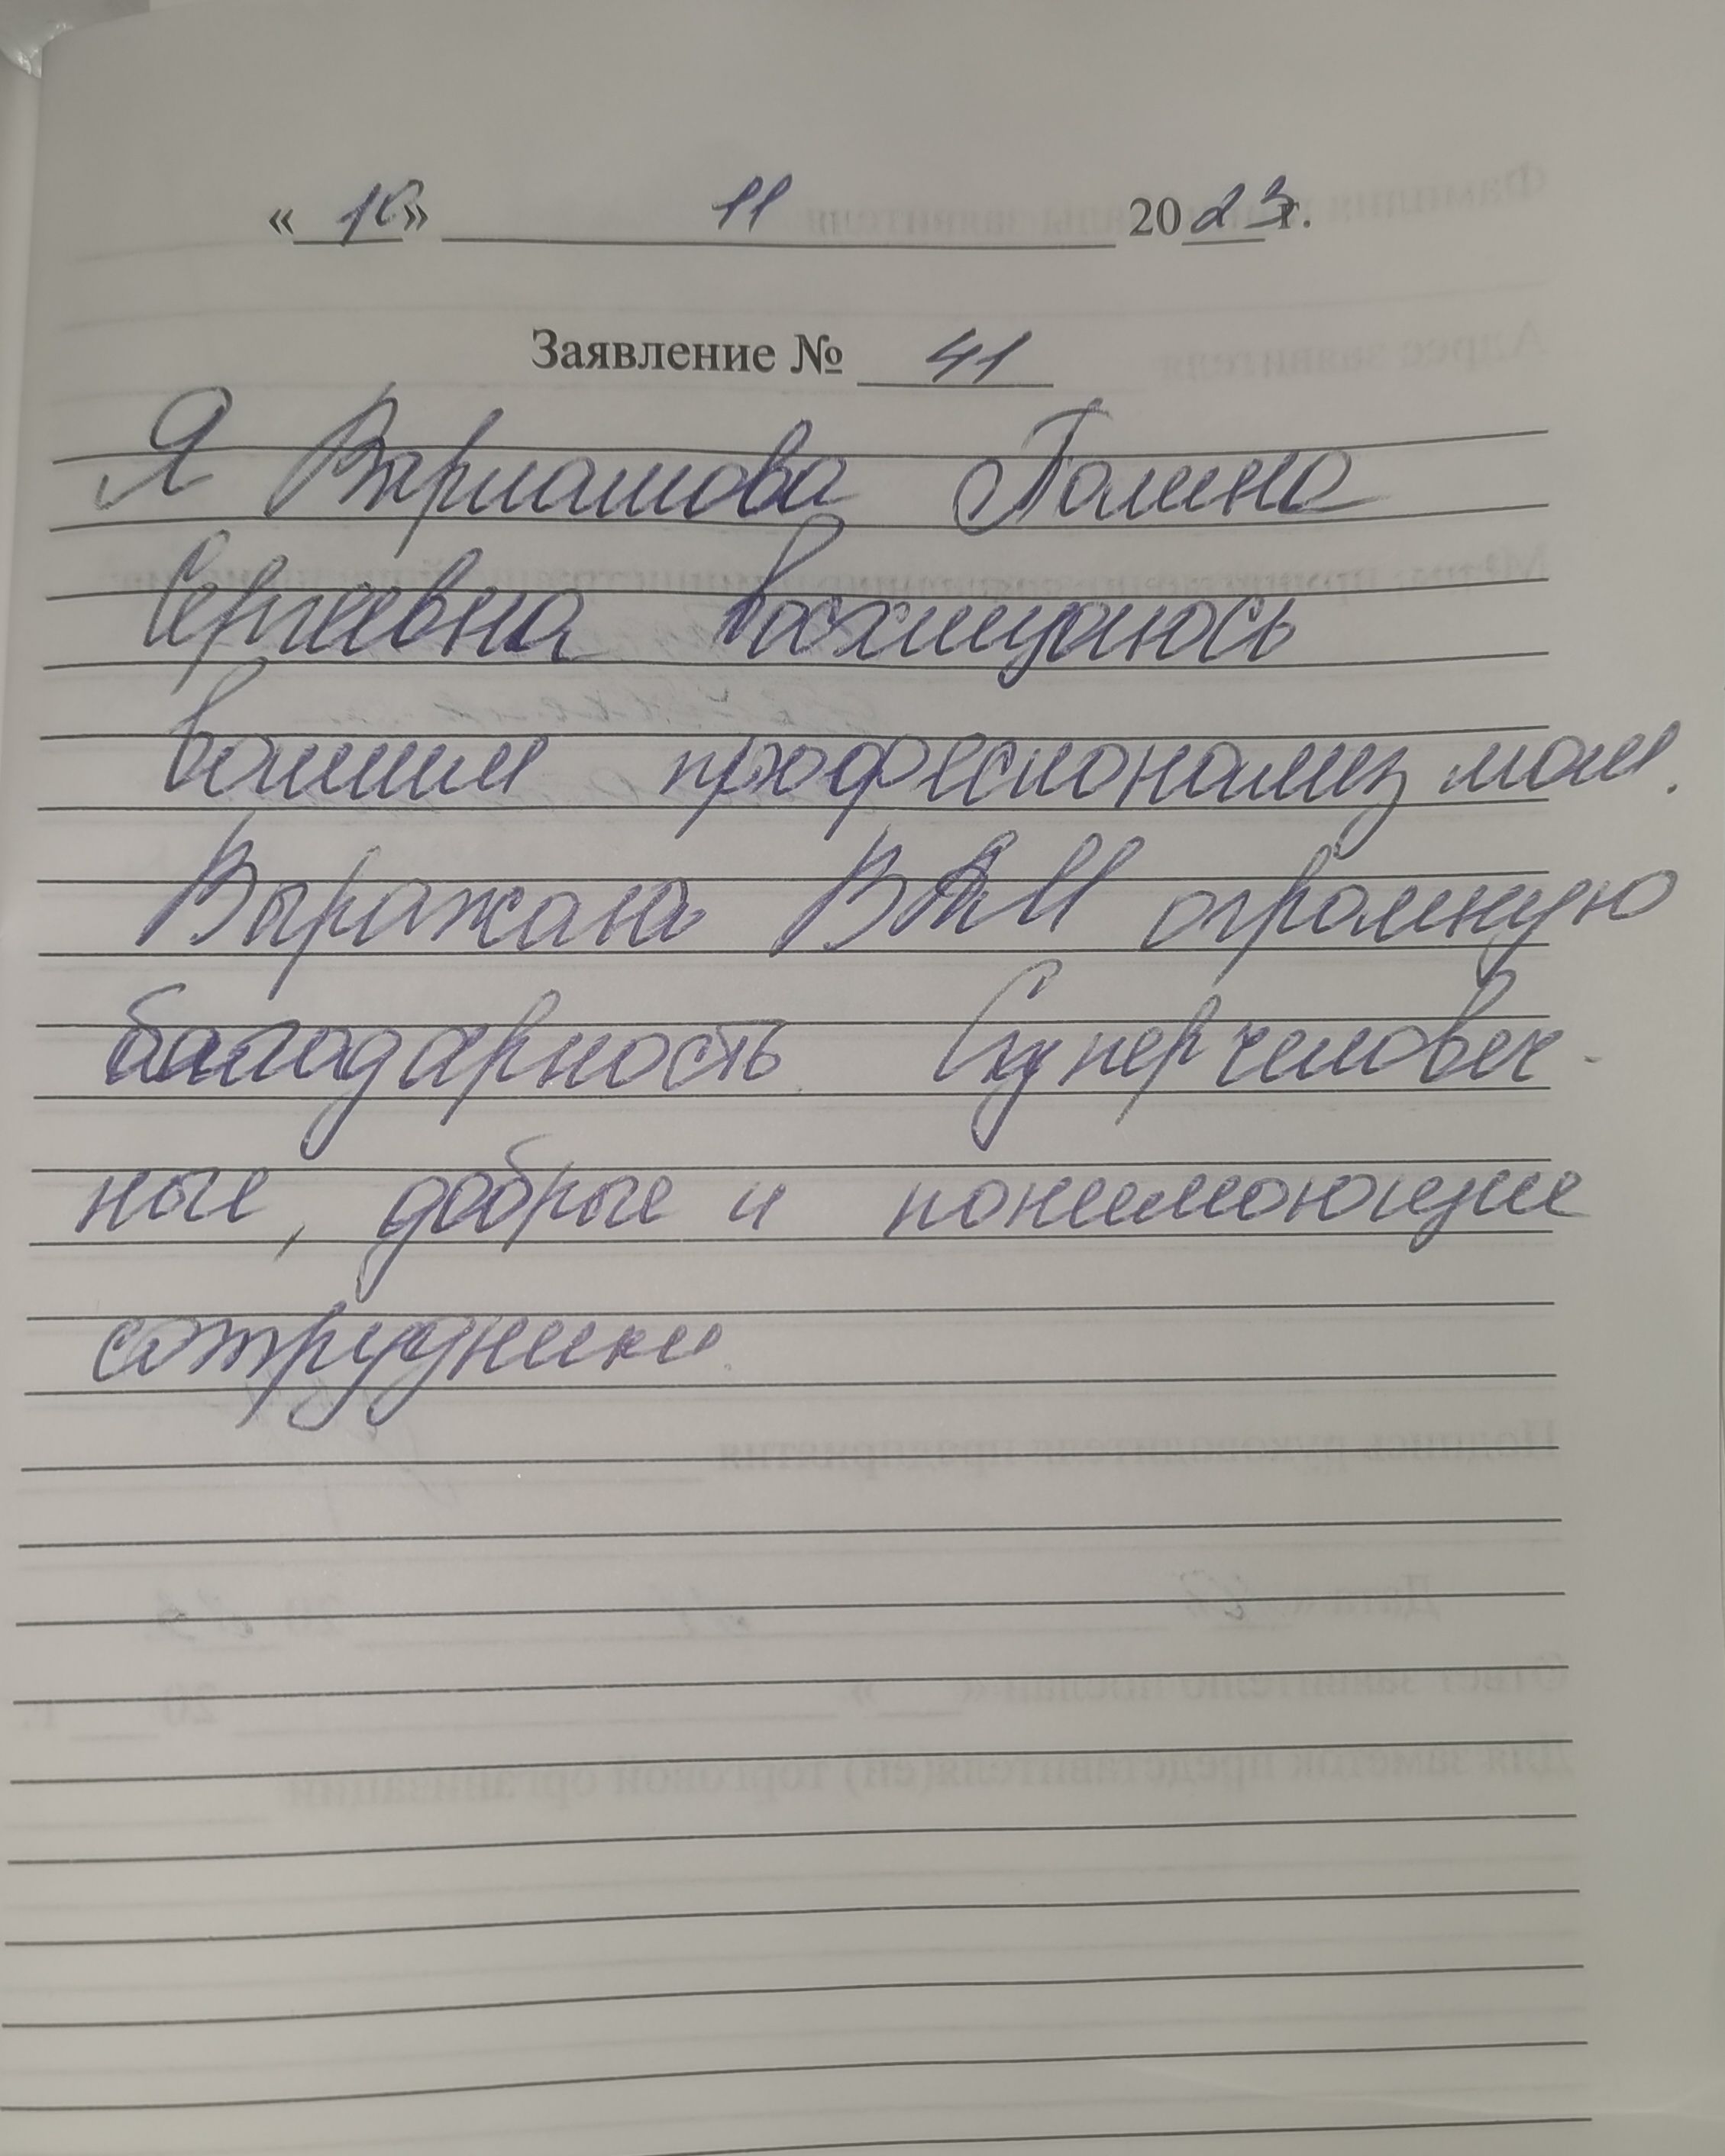 «10» 11 2023г.
Заявление № 41
Я Галина
Сергеевна восхищаюсь
вашим професионализмом.
Выражаю ВАМ огромную
благодарность. Суперчеловеч-
ные, добрые и понимающие
сотрудники.